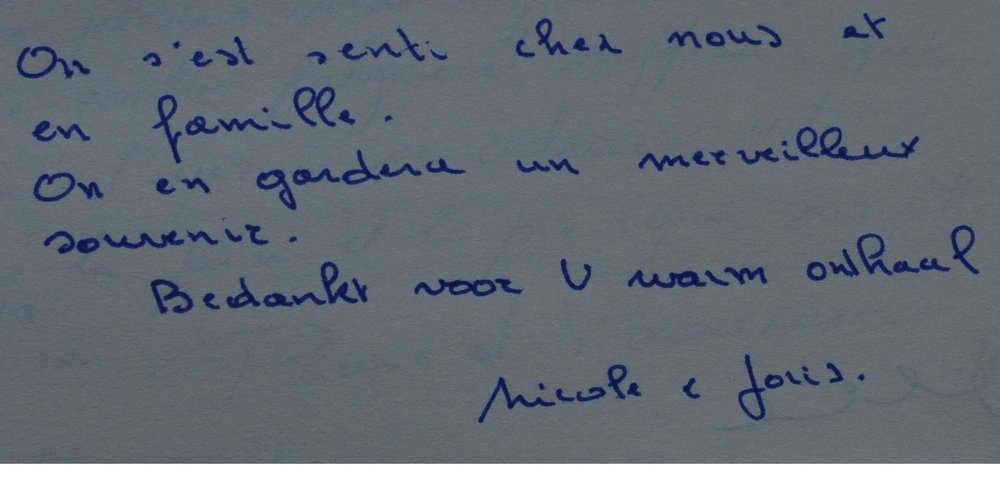 On s'est senti chez nous et
en famille.
On en gardera un merveilleux
souvenir.
Bedankt voor U warm onthaal
Nicole & Joris.